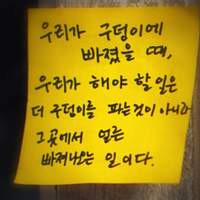 우리가 구덩이에
빠졌을 때,
우리가 해야 할 일은
더 구덩이를 파는것이 아니라
그 곳에서 얼른
빠져나오는 일이다.